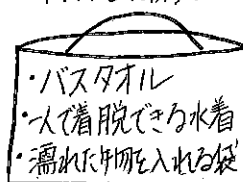 ・バスタオル
・一人で着脱できる水着
・濡れた物を入れる袋